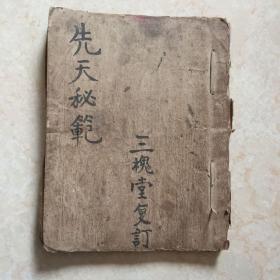 先天秘範
三槐堂复訂